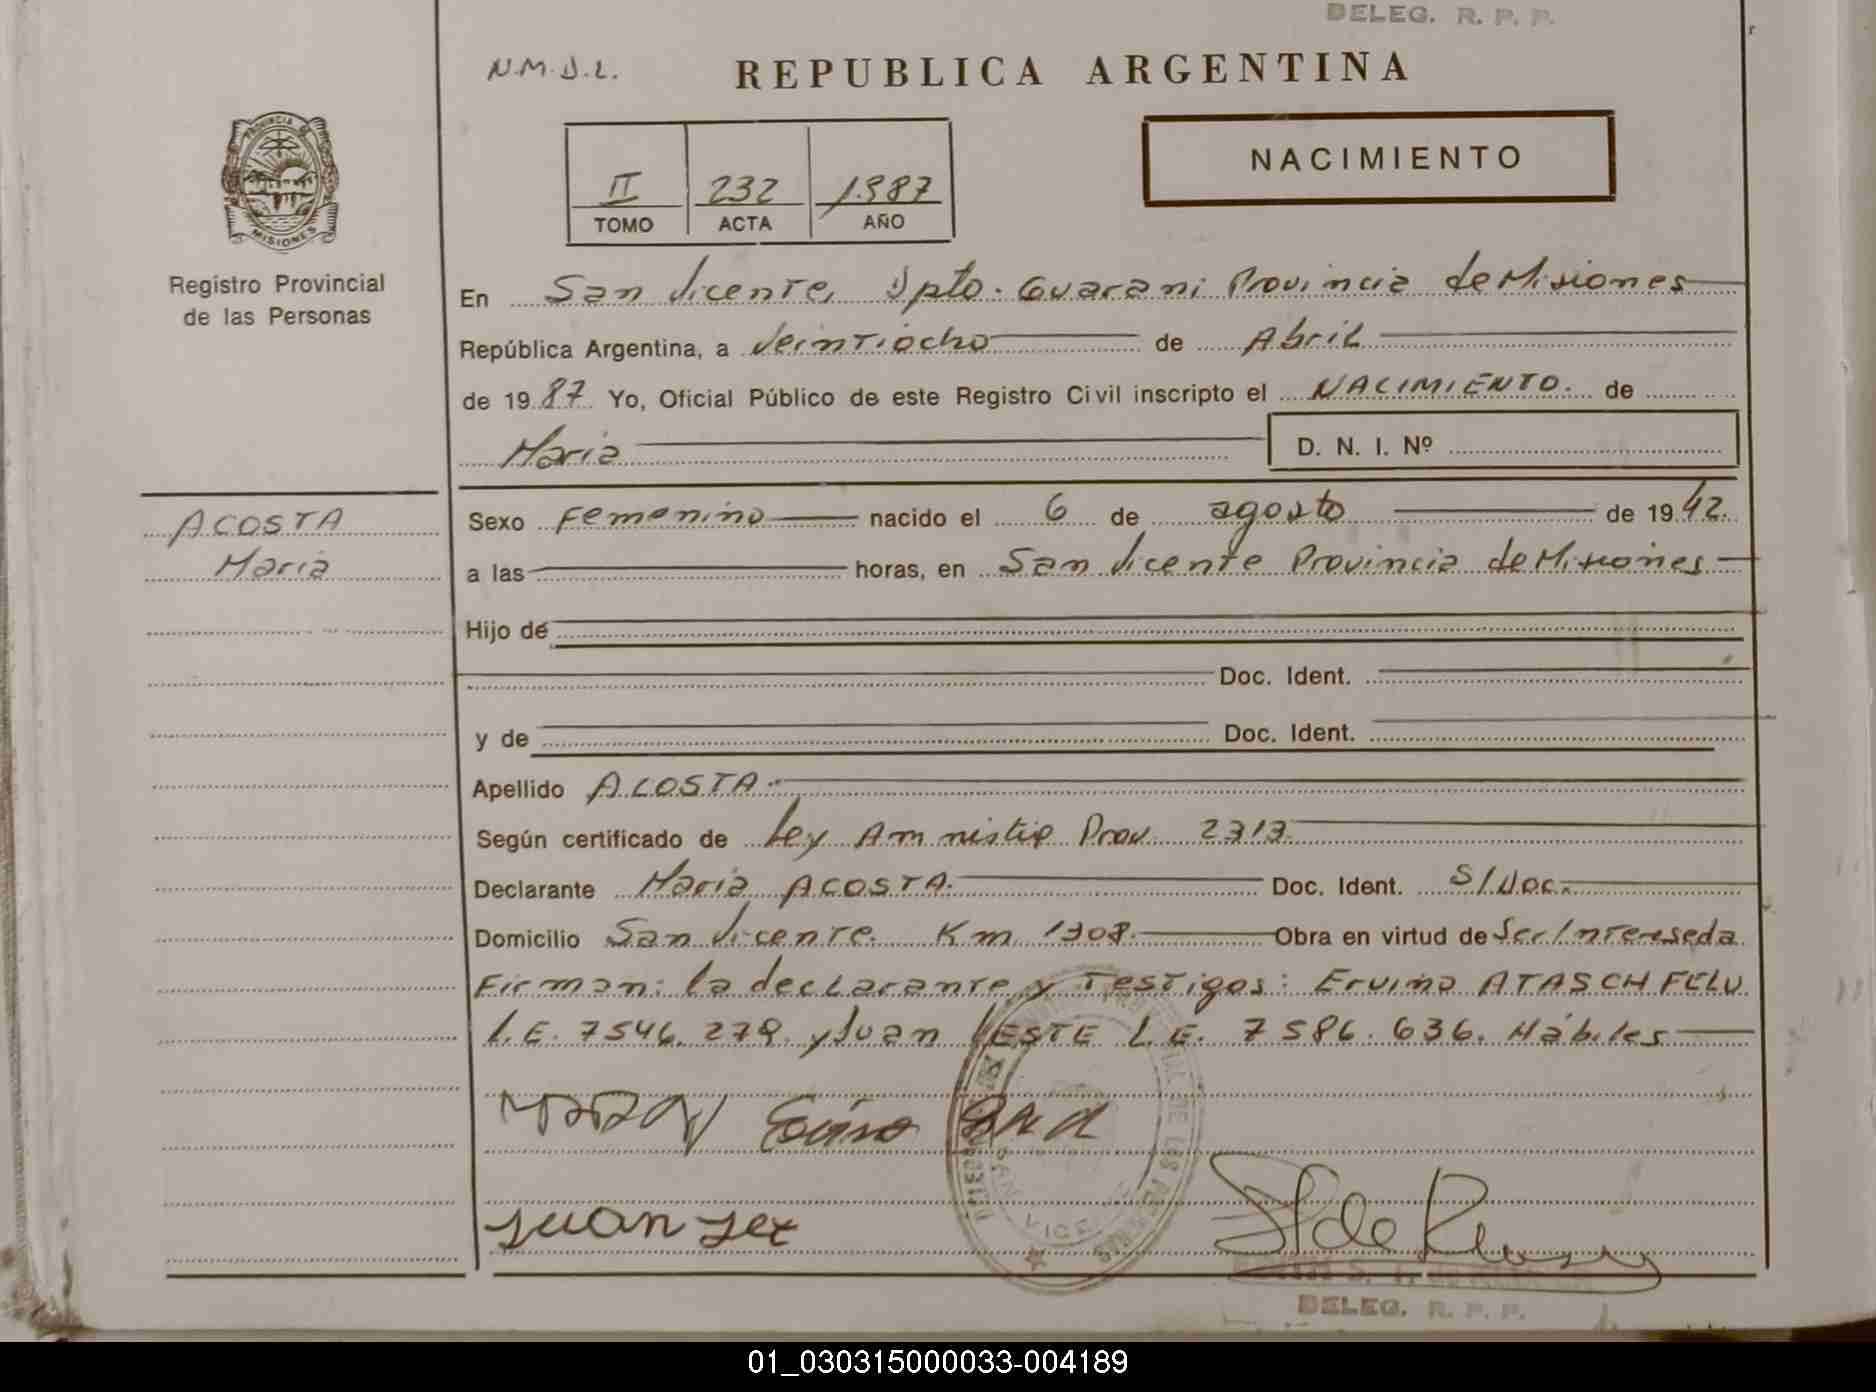 DELEG. R. P. P.
N.M.J.L.
REPUBLICA ARGENTINA
PROVINCIA DE
MISIONES
Registro Provincial
de las Personas
II 232 1987
TOMO ACTA AÑO
NACIMIENTO
En San Vicente, Dpto. Guarani Provincia de Misiones
República Argentina, a Veintiocho de Abril
de 19 87 Yo, Oficial Público de este Registro Civil inscripto el NACIMIENTO. de
Maria D. N. I. Nº
ACOSTA
Maria
Sexo Femenino nacido el 6 de agosto de 19 42.
a las horas, en San Vicente Provincia de Misiones
Hijo de
Doc. Ident.
y de Doc. Ident.
Apellido ACOSTA.
Según certificado de Ley Amnistia Prov. 2313.
Declarante Maria ACOSTA. Doc. Ident. S/Doc.
Domicilio San Vicente. Km 1308. Obra en virtud de Ser Intereseda
Firman: la declarante y Testigos: Ervino ATASCHFELD
L.E. 7546.279. y Juan LESTE L.E. 7586.636. Hábiles
Juan
DELEG. R. P. P.
01_030315000033-004189